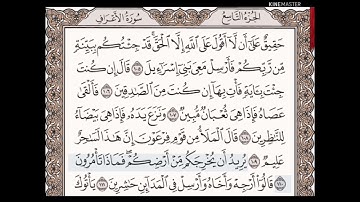 KINEMASTER
الجزء التاسع سورة الأعراف
حَقِيقٌ عَلَىٰ أَن لَّا أَقُولَ عَلَى ٱللَّهِ إِلَّا ٱلْحَقَّ قَدْ جِئْتُكُم بِبَيِّنَةٍ
مِّن رَّبِّكُمْ فَأَرْسِلْ مَعِىَ بَنِىٓ إِسْرَٰٓءِيلَ ١٠٥ قَالَ إِن كُنتَ
جِئْتَ بِـَٔايَةٍ فَأْتِ بِهَآ إِن كُنتَ مِنَ ٱلصَّٰدِقِينَ ١٠٦ فَأَلْقَىٰ
عَصَاهُ فَإِذَا هِىَ ثُعْبَانٌ مُّبِينٌ ١٠٧ وَنَزَعَ يَدَهُۥ فَإِذَا هِىَ بَيْضَآءُ
لِلنَّٰظِرِينَ ١٠٨ قَالَ ٱلْمَلَأُ مِن قَوْمِ فِرْعَوْنَ إِنَّ هَٰذَا لَسَٰحِرٌ
عَلِيمٌ ١٠٩ يُرِيدُ أَن يُخْرِجَكُم مِّنْ أَرْضِكُمْ فَمَاذَا تَأْمُرُونَ
١١٠ قَالُوٓا۟ أَرْجِهْ وَأَخَاهُ وَأَرْسِلْ فِى ٱلْمَدَآئِنِ حَٰشِرِينَ ١١١ يَأْتُوكَ